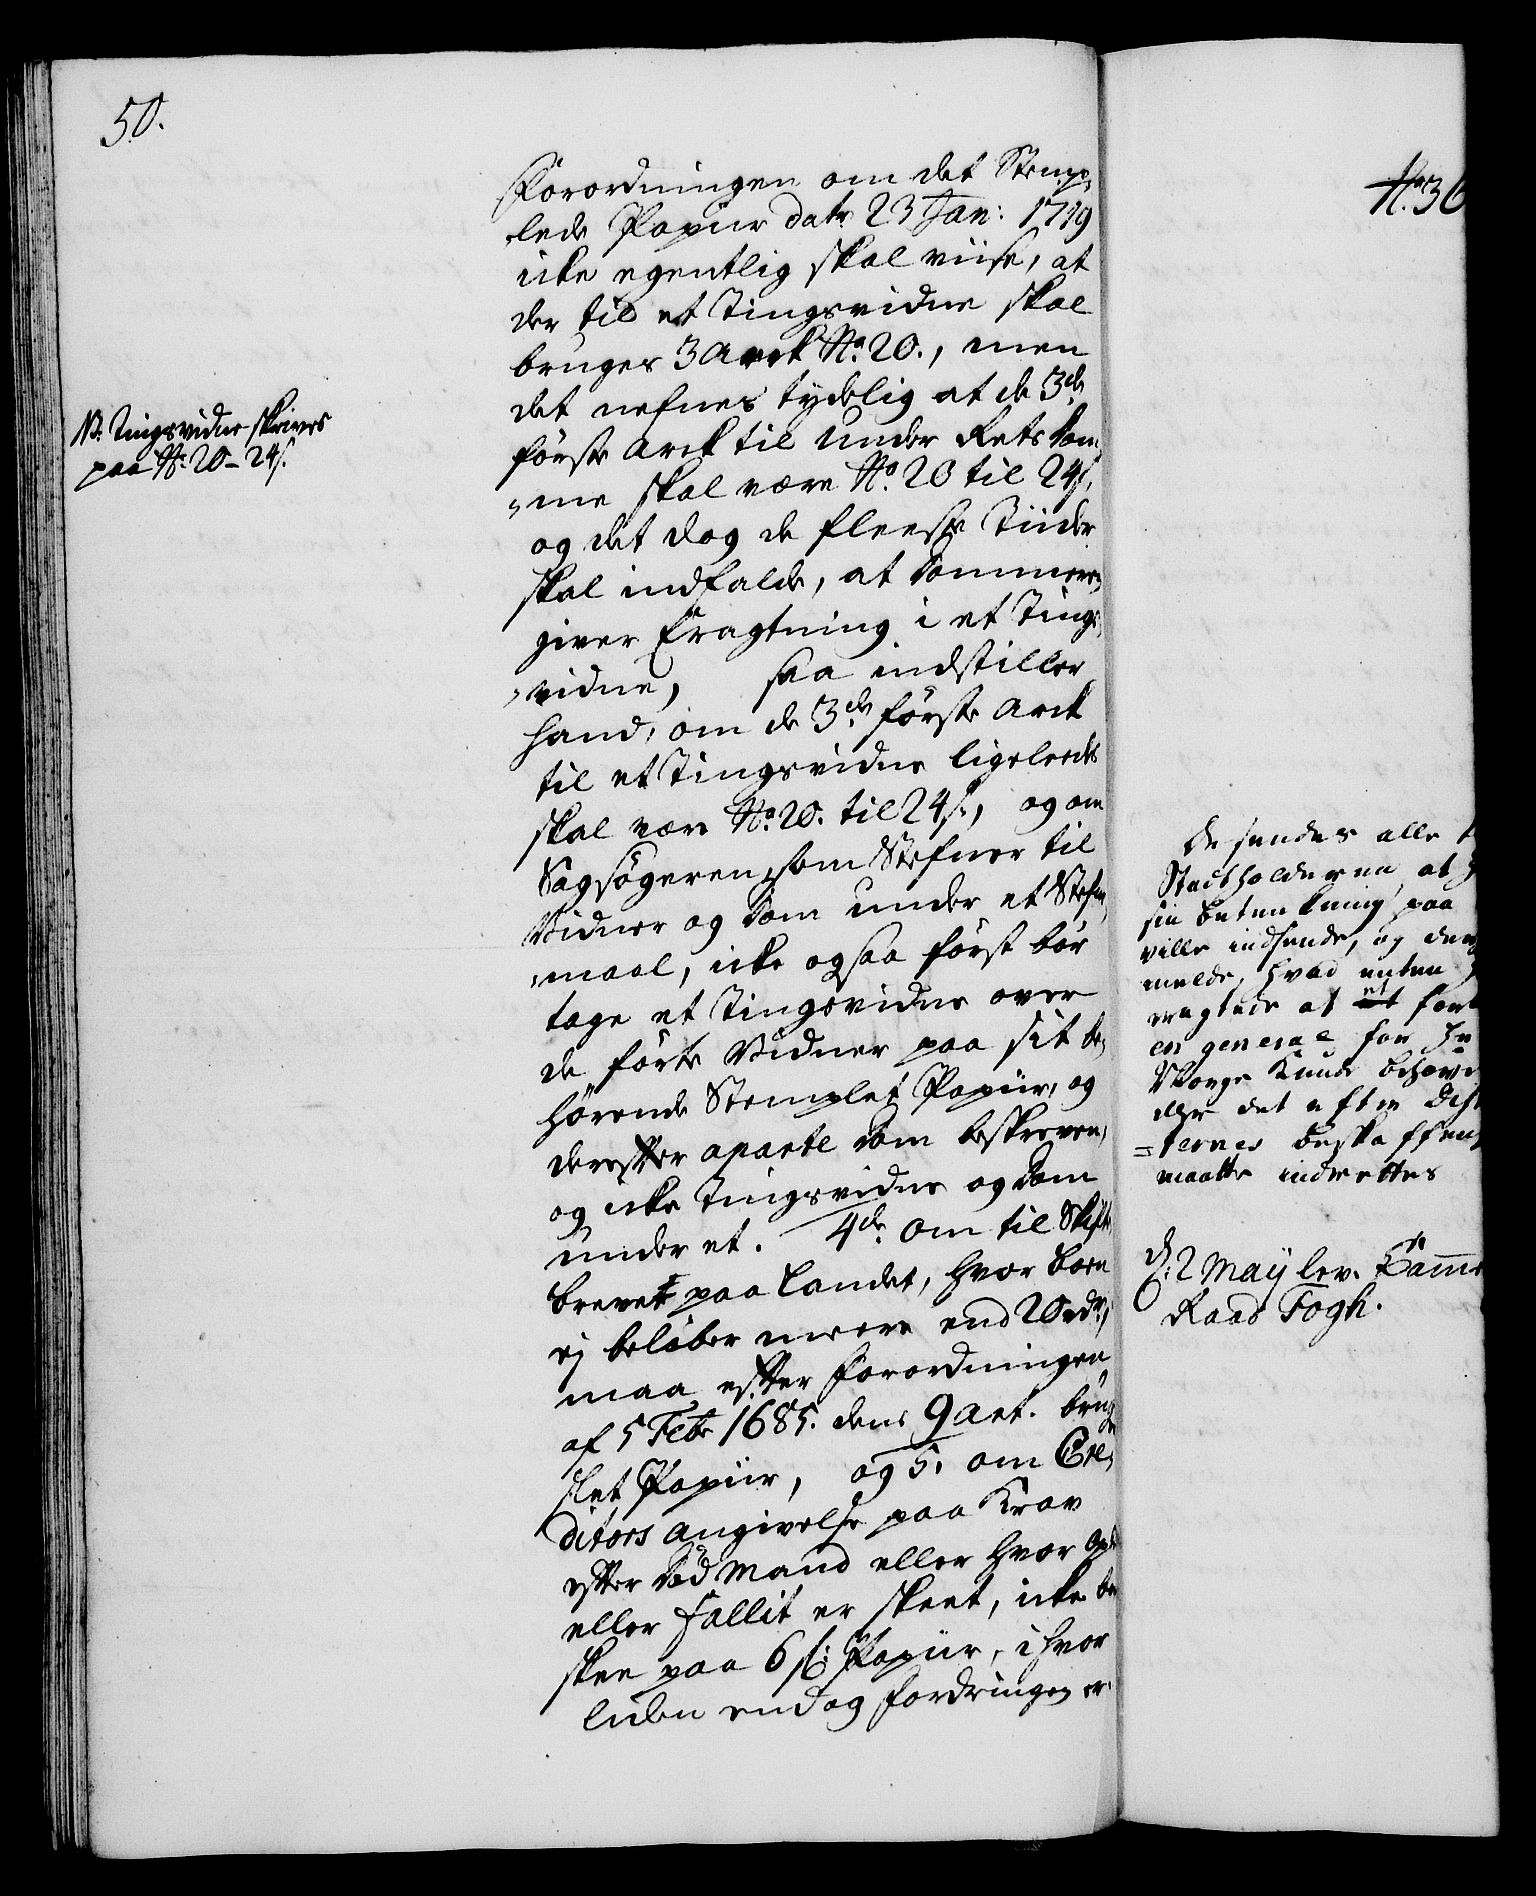 50.
Forordningen om det Stemp,
lede Papiir dat. 23 Jan: 1719
icke egentlig skal viise, at
der til et Tingsvidne skal
bruges 3 Arck No. 20., men
det nefnes tydelig at de 3de
første Arck til Under Rets Dom,
,,me skal være No. 20 til 24 s.
og det dog de fleeste Tiider
skal indfalde, at Dommeren
giver Eragtning i et Tings,
,,vidne, saa indstiller
hand, om de 3de første Arck
til et Tingsvidne ligeleedes
skal være No. 20. til 24 s., og om
Sagsøgeren, som Stefner til
Vidner og Dom under et Stefn,
,,maal, icke ogsaa først bør
tage et Tingsvidne over
de førte Vidner paa sit be,
hørende Stemplet Papiir, og
derefter aparte Dom beskreven,
og icke Tingsvidne og Dom
under et. 4de. Om til Skifte
brevet paa Landet, hvor Boen
ej beløber meere end 20 rdr.,
maa efter Forordningen
af 5 Febr 1685. dens 9 Art. bruges
slet Papiir, og 5. om Cre,
ditors angivelse paa Krav
efter død Mand eller hvor
eller Fallit er skeet, icke bør
skee paa 6 s. Papiir, i hvor
liden endog fordringen er.
NB. Tingsvidne skrives
paa No. 20 - 24 s.
No. 36
De sendes alle
Stadtholderen, at
sin betenkning paa
ville indsende, og der
melde, hvad enten
eragtede at et
en general for
Norge kunde
eller det efter
=ternes beskaffen
maatte indrettes
d: 2 Maij lev.
Raad Fogh.